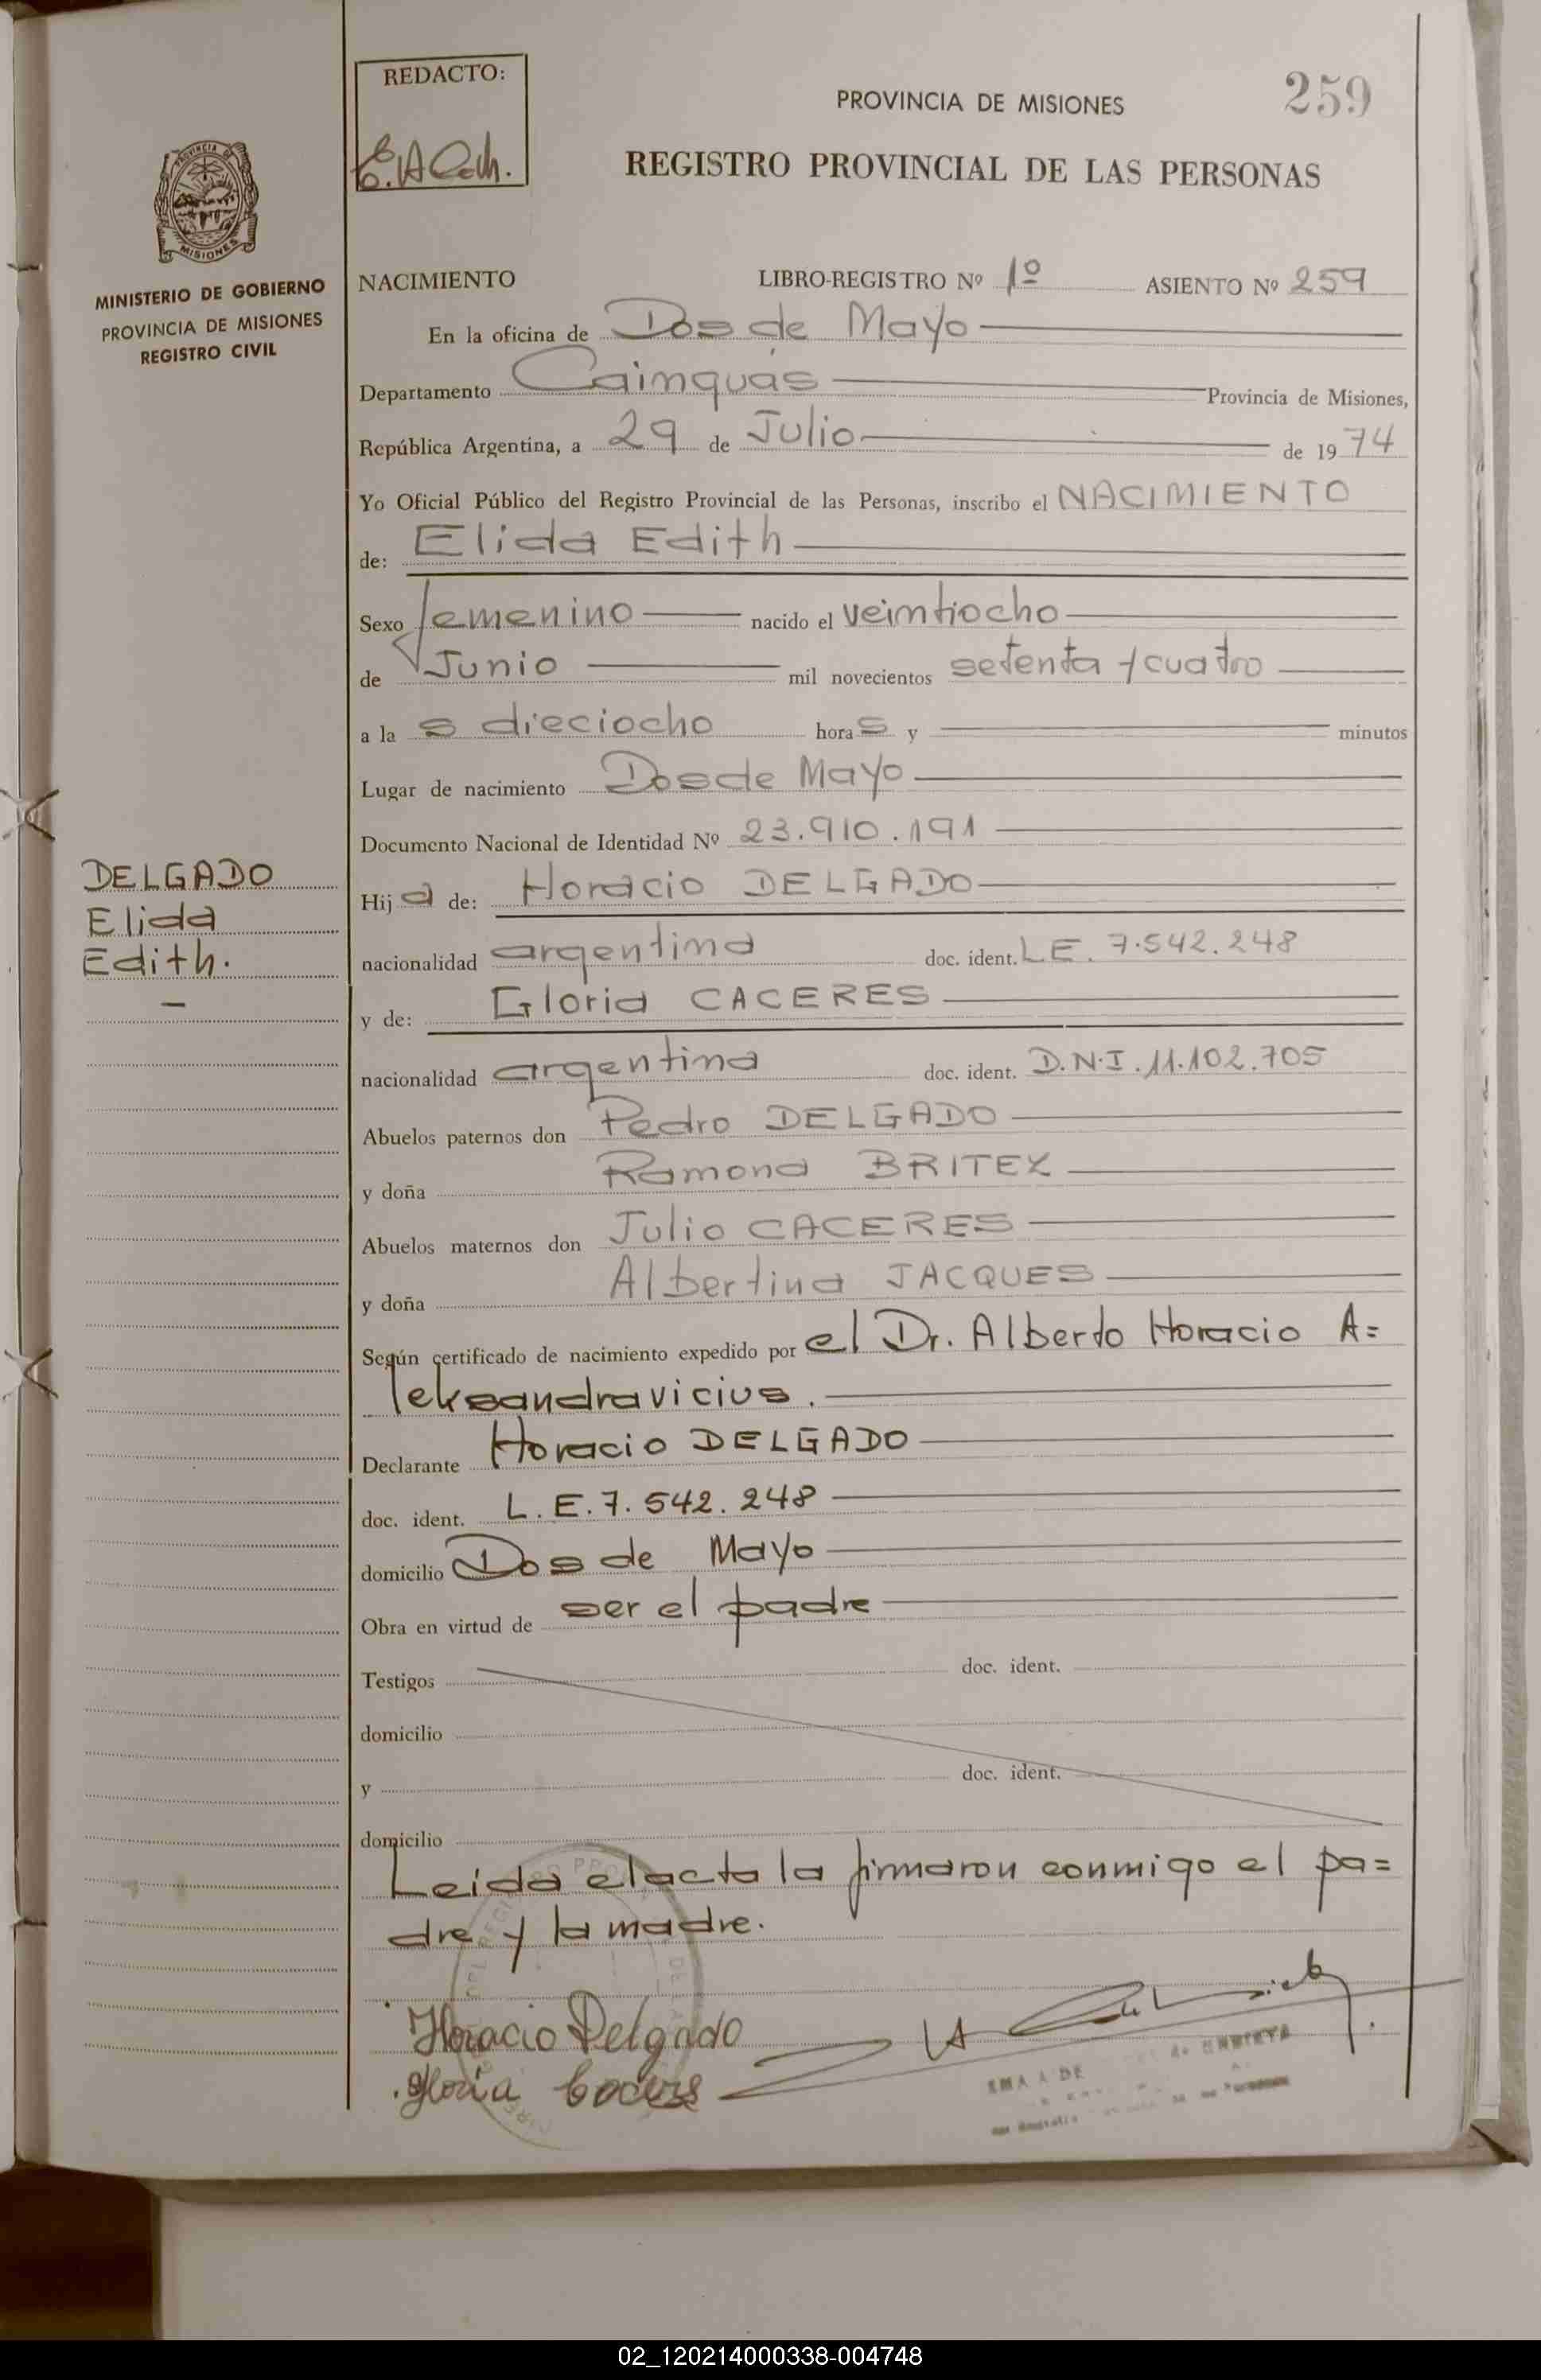 REDACTO:
PROVINCIA DE MISIONES
259
REGISTRO PROVINCIAL DE LAS PERSONAS
PROVINCIA DE
MISIONES
MINISTERIO DE GOBIERNO
PROVINCIA DE MISIONES
REGISTRO CIVIL
NACIMIENTO LIBRO-REGISTRO Nº 1º ASIENTO Nº 259
En la oficina de Dos de Mayo
Departamento Cainquás Provincia de Misiones,
República Argentina, a 29 de Julio de 1974
Yo Oficial Público del Registro Provincial de las Personas, inscribo el NACIMIENTO
de: Elida Edith
Sexo femenino nacido el veintiocho
de Junio mil novecientos setenta y cuatro
a la s dieciocho hora s y minutos
Lugar de nacimiento Dos de Mayo
Documento Nacional de Identidad Nº 23.910.191
DELGADO
Elida
Edith.
Hij a de: Horacio DELGADO
nacionalidad argentina doc. ident. L.E. 7.542.248
y de: Gloria CACERES
nacionalidad argentina doc. ident. D.N.I. 11.102.705
Abuelos paternos don Pedro DELGADO
y doña Ramona BRITEZ
Abuelos maternos don Julio CACERES
y doña Albertina JACQUES
Según certificado de nacimiento expedido por el Dr. Alberto Horacio A=
leksandravicius.
Declarante Horacio DELGADO
doc. ident. L.E. 7.542.248
domicilio Dos de Mayo
Obra en virtud de ser el padre
Testigos doc. ident.
domicilio
y doc. ident.
domicilio
Leida el acta la firmaron conmigo el pa=
dre y la madre.
Horacio Delgado
Gloria Caceres
02_120214000338-004748